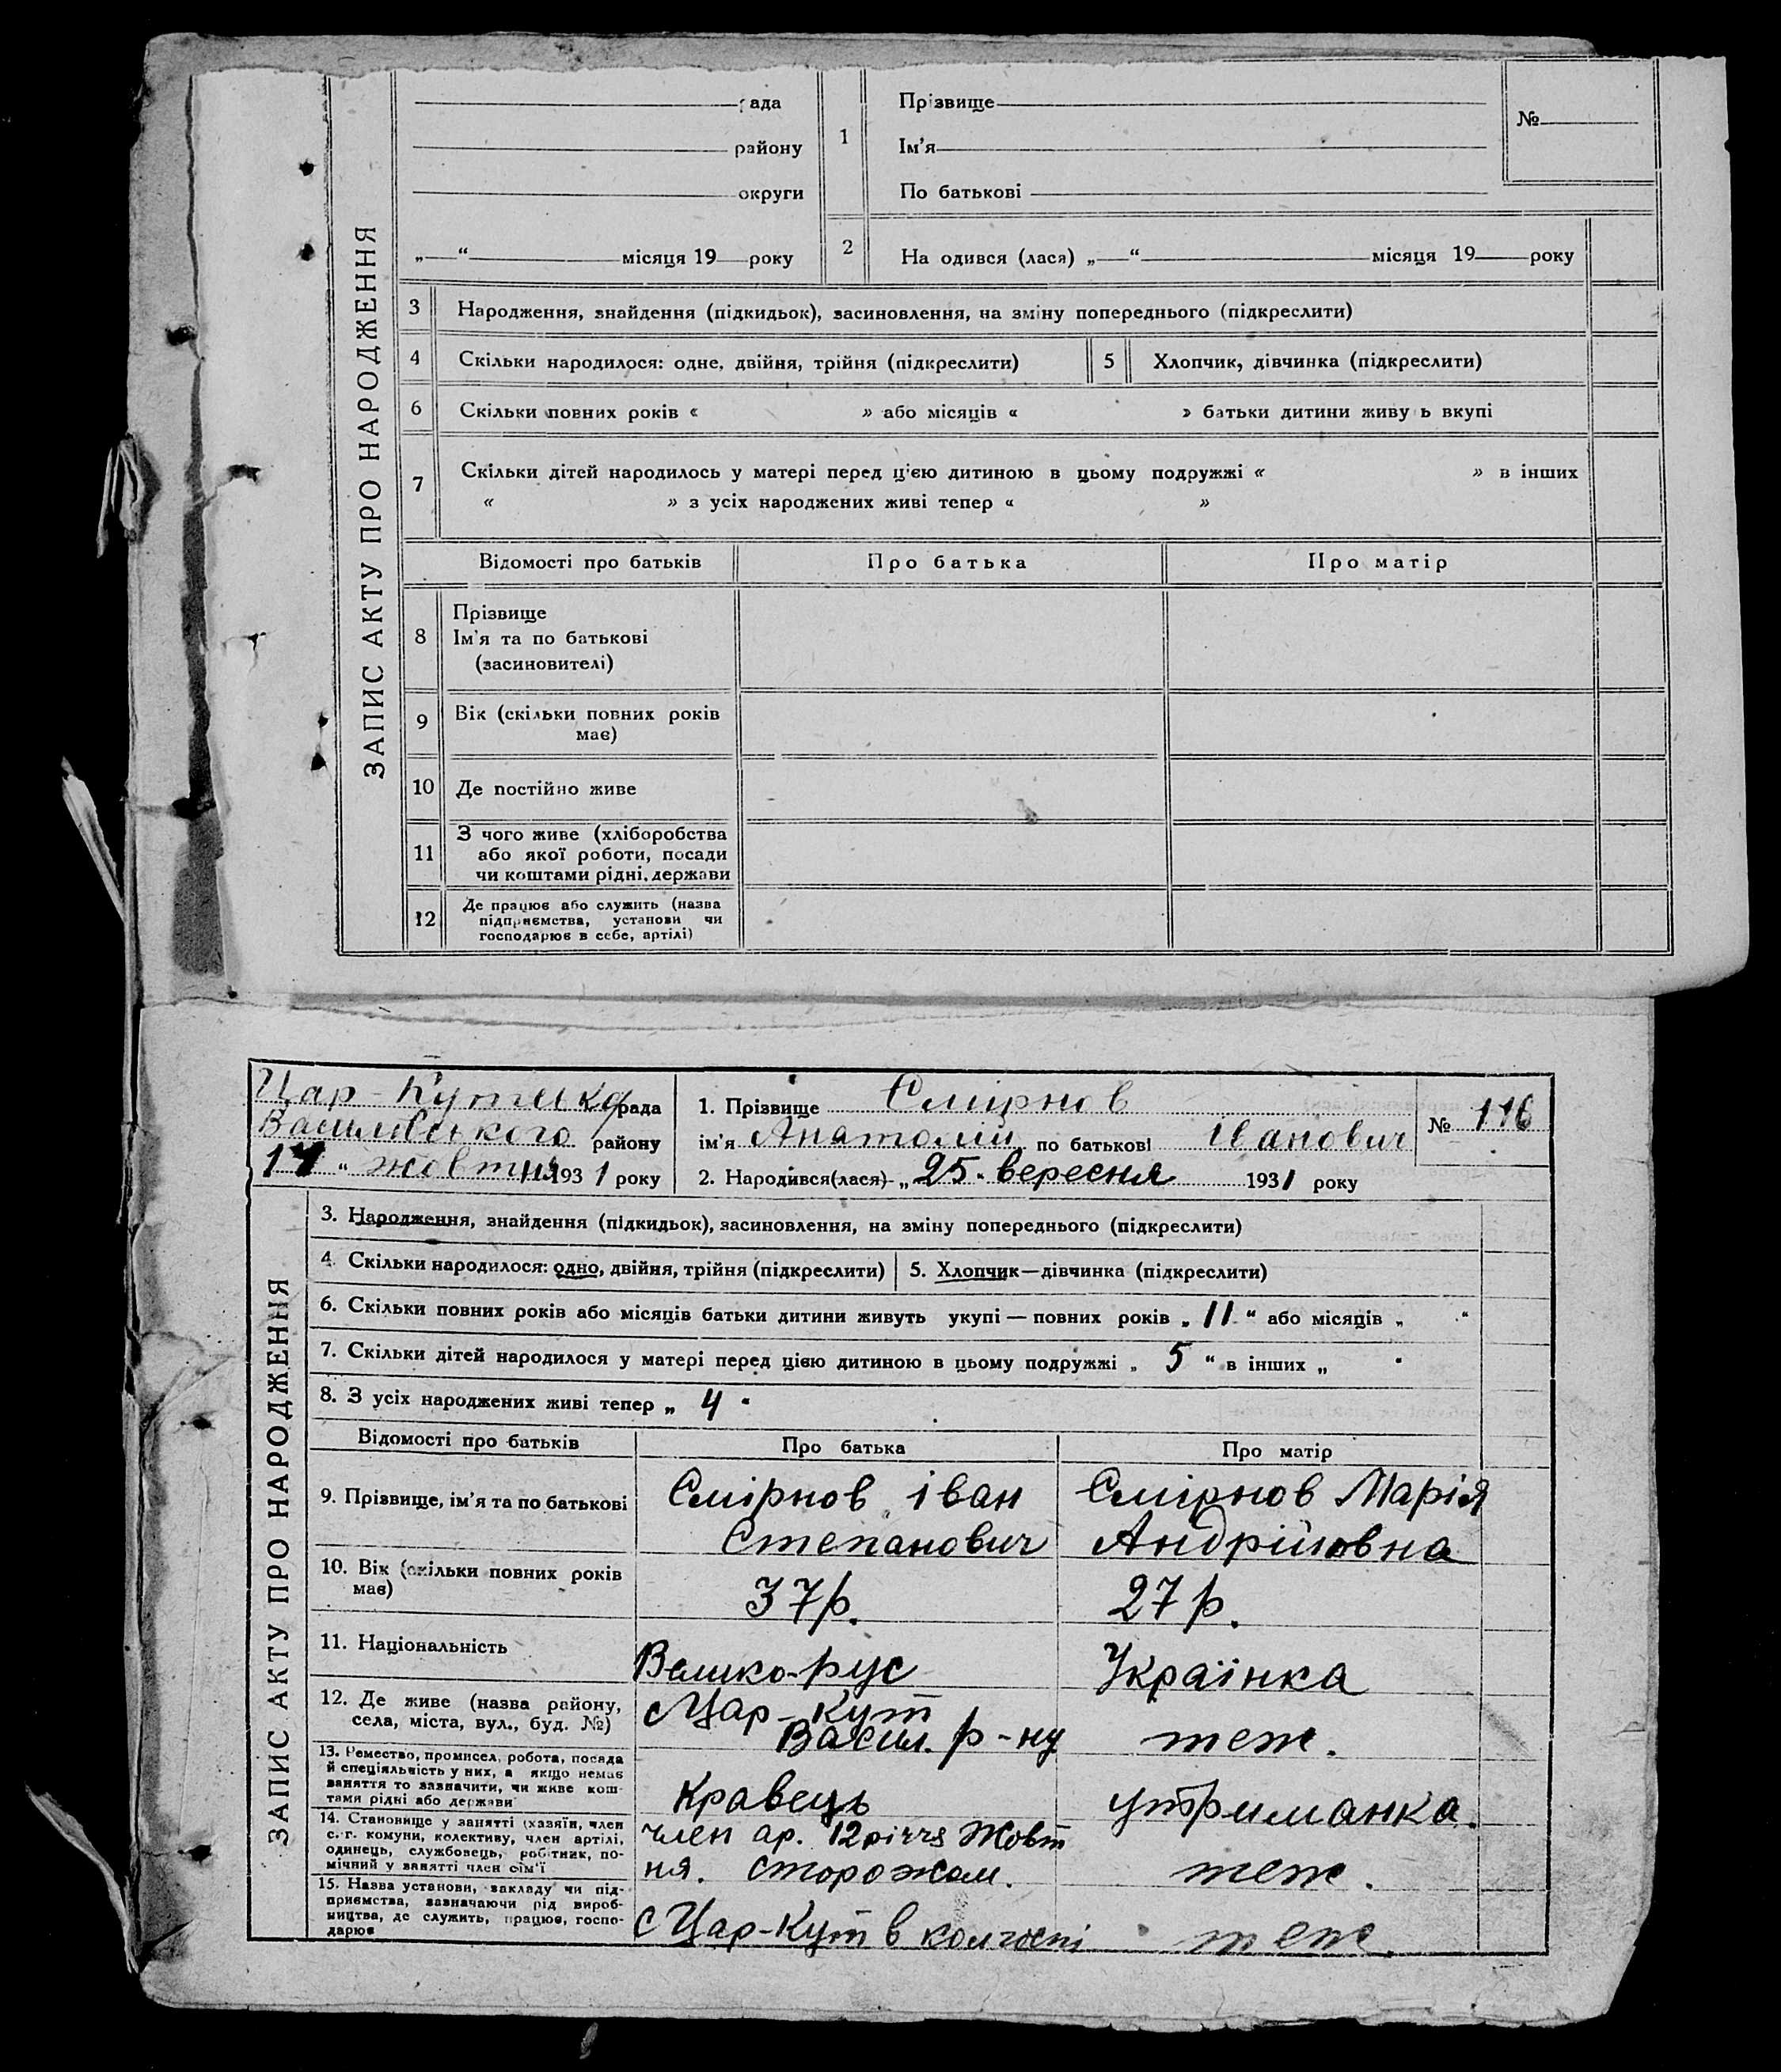 ЗАПИС АКТУ ПРО НАРОДЖЕННЯ
рада
району
округи
„ “ місяця 19 року
1
Прізвище
Ім'я
По батькові
№
2
На одився (лася) „ “ місяця 19 року
3 Народження, знайдення (підкидьок), засиновлення, на зміну попереднього (підкреслити)
4 Скільки народилося: одне, двійня, трійня (підкреслити) 5 Хлопчик, дівчинка (підкреслити)
6 Скільки повних років « » або місяців « » батьки дитини живу ь вкупі
7 Скільки дітей народилось у матері перед цією дитиною в цьому подружжі « » в інших
« » з усіх народжених живі тепер « »
Відомості про батьків Про батька Про матір
8 Прізвище
Ім'я та по батькові
(засиновителі)
9 Вік (скільки повних років
має)
10 Де постійно живе
11 З чого живе (хліборобства
або якої роботи, посади
чи коштами рідні, держави
12 Де працює або служить (назва
підприємства, установи чи
господарює в себе, артілі)
ЗАПИС АКТУ ПРО НАРОДЖЕННЯ
Цар-Кутська рада
Василівського району
“ жовтня 1931 року
1. Прізвище Смірнов
ім'я Анатолій по батькові Іванович
№ 116
2. Народився(лася) „ 25 “ вересня 1931 року
3. Народження, знайдення (підкидьок), засиновлення, на зміну попереднього (підкреслити)
4. Скільки народилося: одно, двійня, трійня (підкреслити) 5. Хлопчик—дівчинка (підкреслити)
6. Скільки повних років або місяців батьки дитини живуть укупі — повних років „ 11 “ або місяців „ “
7. Скільки дітей народилося у матері перед цією дитиною в цьому подружжі „ 5 “ в інших „
8. З усіх народжених живі тепер „ 4 “
Відомості про батьків Про батька Про матір
9. Прізвище, ім'я та по батькові
Смірнов Іван
Степанович
Смірнов Марія
Андрійовна
10. Вік (скільки повних років
має)
37 р.
27 р.
11. Національність
Велико-рус
Українка
12. Де живе (назва району,
села, міста, вул., буд. №)
с Цар-Кут
Васил. р-ну
теж.
13. Ремество, промисел, робота, посада
й спеціяльність у них, а якщо немає
заняття то зазначити, чи живе кош-
тами рідні або держави
Кравець
утриманка.
14. Становище у занятті (хазяїн, член
с.-г. комуни, колективу, член артілі,
одинець, службовець, робітник, по-
мічний у занятті член сім'ї
член ар. 12 річчя Жовт
ня. сторожем.
теж.
15. Назва установи, закладу чи під-
приємства, зазначаючи рід вироб-
ництва, де служить, працює, госпо-
дарює
с Цар-Кут в колгоспі
теж.